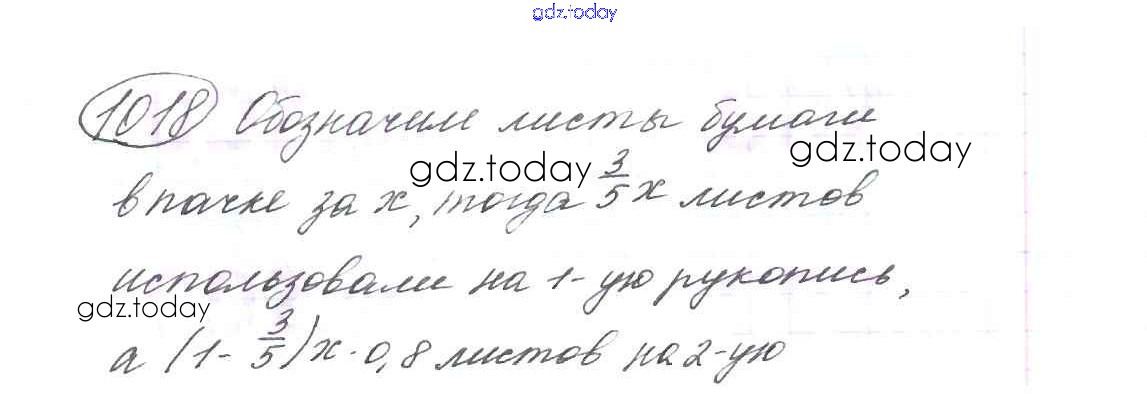 gdz.today
1018 Обозначим листы бумаги
gdz.today
gdz.today
в пачке за x, тогда 3/5 x листов
использовали на 1-ую рукопись,
gdz.today
а (1- 3/5)x·0,8 листов на 2-ую